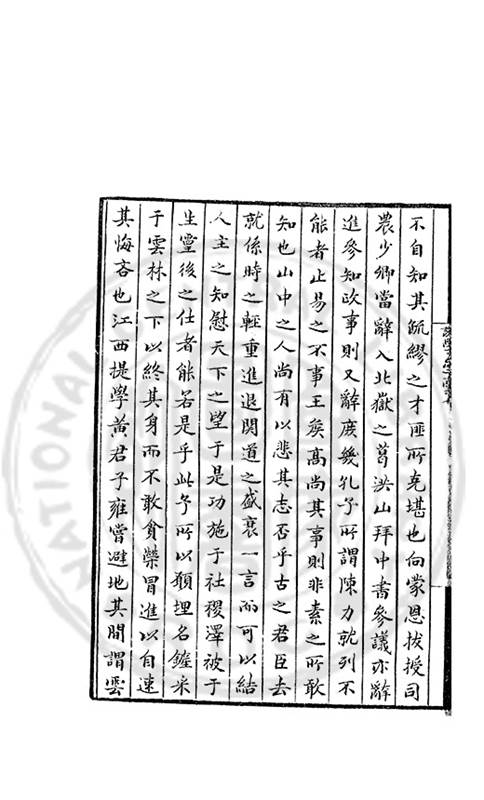 不自知其疏繆之才匪所克堪也向蒙恩拔授司
農少卿嘗辭入北嶽之葛洪山拜中書參議亦辭
進參知政事則又辭庶幾孔子所謂陳力就列不
能者止易之不事王矦髙尚其事則非素之所敢
知也山中之人尚有以悲其志否乎古之君臣去
就係時之輕重進退関道之盛衰一言而可以結
人主之知慰天下之望于是功施于社稷澤被于
生靈後之仕者能若是乎此予所以願埋名鏟采
于雲林之下以終其身而不敢貪榮冒進以自速
其悔吝也江西提學黃君子雍嘗避地其間謂雲
NATIONAL